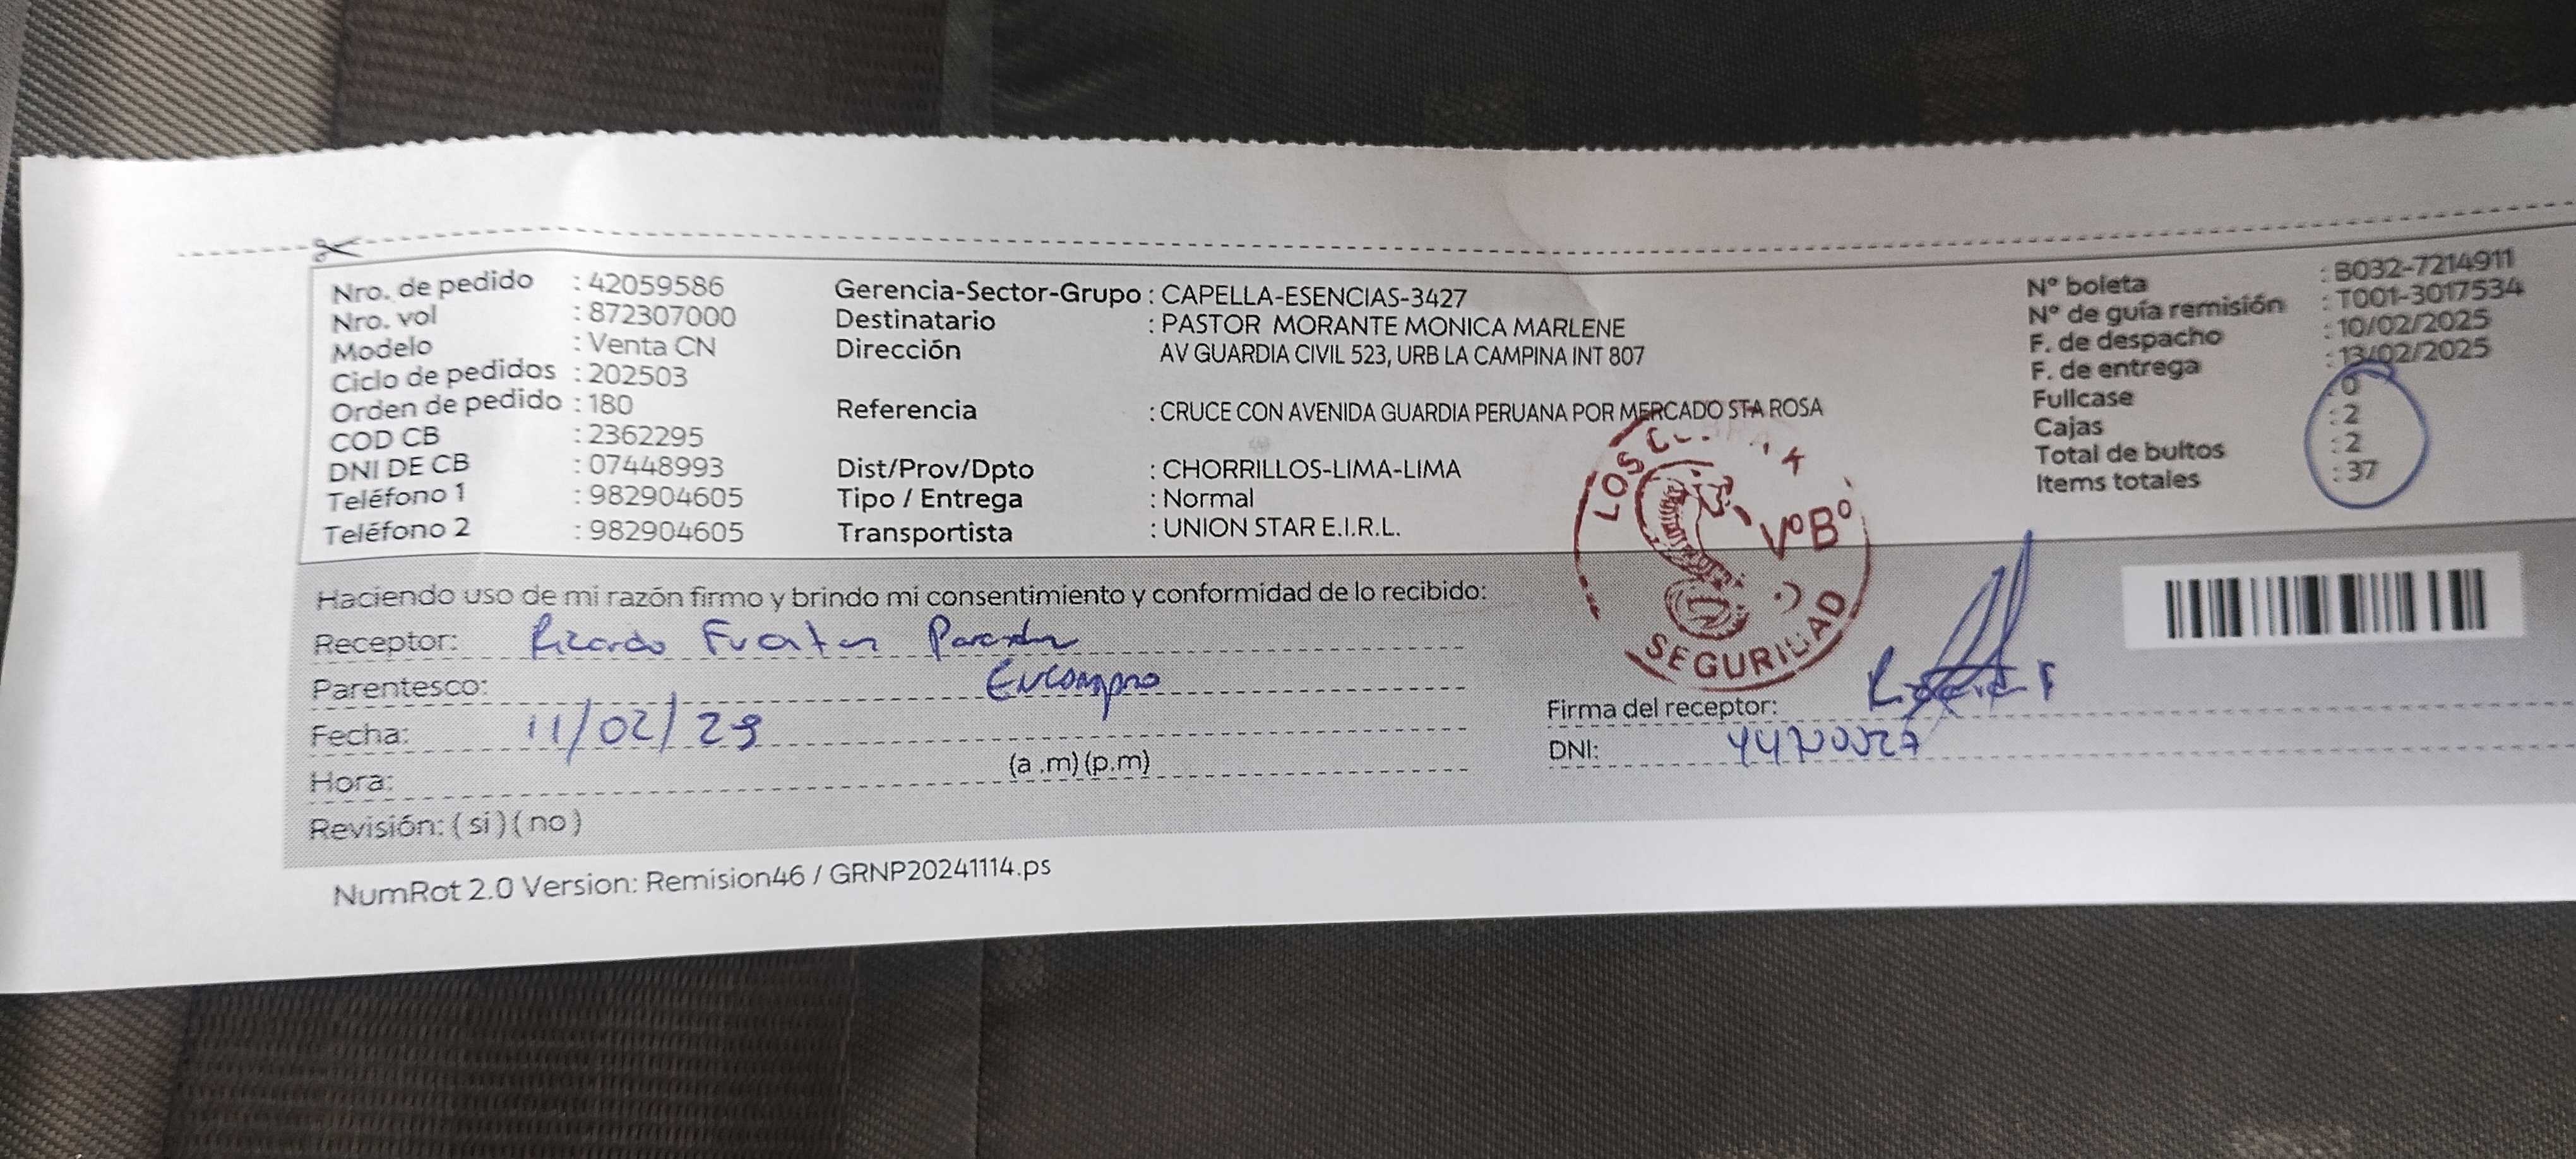 Nro. de pedido : 42059586
Nro. vol : 872307000
Modelo : Venta CN
Ciclo de pedidos : 202503
Orden de pedido : 180
COD CB : 2362295
DNI DE CB : 07448993
Teléfono 1 : 982904605
Teléfono 2 : 982904605
Gerencia-Sector-Grupo : CAPELLA-ESENCIAS-3427
Destinatario : PASTOR MORANTE MONICA MARLENE
Dirección AV GUARDIA CIVIL 523, URB LA CAMPINA INT 807
Referencia : CRUCE CON AVENIDA GUARDIA PERUANA POR MERCADO STA ROSA
Dist/Prov/Dpto : CHORRILLOS-LIMA-LIMA
Tipo / Entrega : Normal
Transportista : UNION STAR E.I.R.L.
N° boleta : B032-7214911
N° de guía remisión : T001-3017534
F. de despacho : 10/02/2025
F. de entrega : 13/02/2025
Fullcase : 0
Cajas : 2
Total de bultos : 2
Items totales : 37
LOS
V°B°
SEGURIDAD
Haciendo uso de mi razón firmo y brindo mi consentimiento y conformidad de lo recibido:
Receptor: Ricardo
Parentesco:
Fecha: 11/02/25
Hora: (a .m) (p.m)
Revisión: ( si ) ( no )
Firma del receptor:
DNI:
NumRot 2.0 Version: Remision46 / GRNP20241114.ps